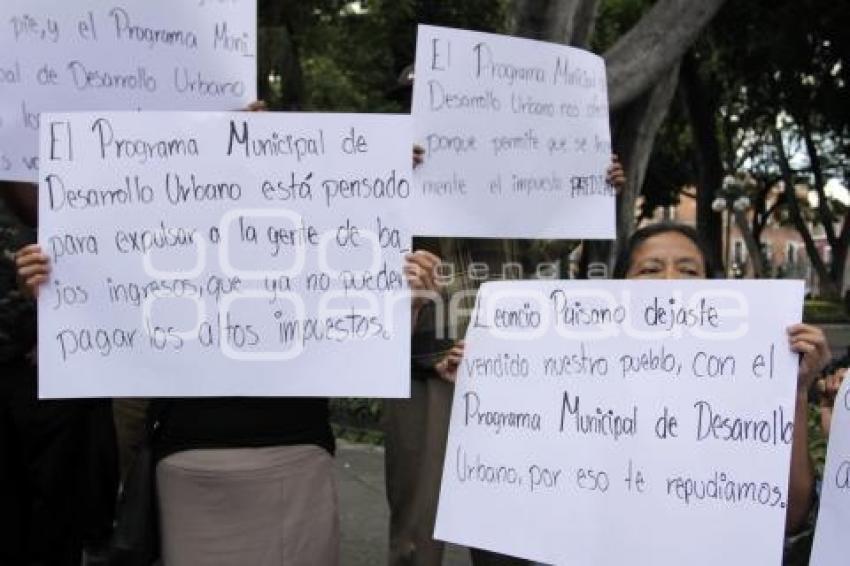 pie, y el Programa Muni
pal de Desarrollo Urbano
El Programa Municipal de
Desarrollo Urbano está pensado
para expulsar a la gente de ba
jos ingresos, que ya no pueden
pagar los altos impuestos.
El Programa Municipal
Desarrollo Urbano nos afec
porque permite que se in
mente el impuesto PREDIAL
Leoncio Paisano dejaste
vendido nuestro pueblo, con el
Programa Municipal de Desarrollo
Urbano, por eso te repudiamos.
agencia
enfoque